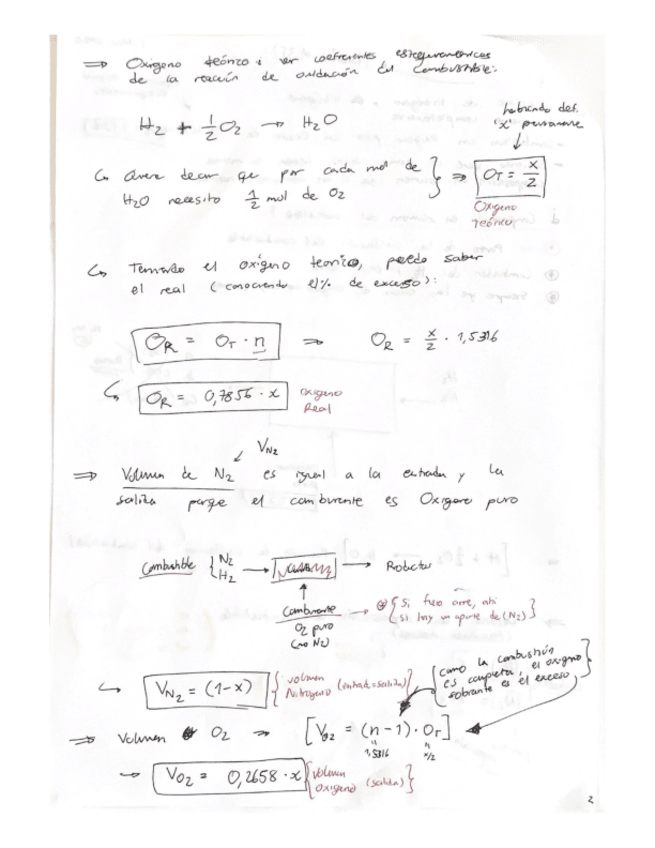 ⇒ Oxigeno teórico: ver coeficientes estequiométricos
de la reacción de oxidación del combustible:
habiendo def.
"x" previamente
H₂ + 1/2 O₂ → H₂O
↳ Quiere decir que por cada mol de
H₂O necesito 1/2 mol de O₂
⇒ O_T = x/2
Oxigeno
teórico
↳ Teniendo el oxígeno teorico, puedo saber
el real (conociendo el % de exceso):
O_R = O_T · n ⇒ O_R = x/2 · 1,5316
↳ O_R = 0,7856 · x
oxigeno
Real
V_N2
⇒ Volumen de N₂ es igual a la entrada y la
salida porque el comburente es Oxigeno puro
Combustible { N₂ H₂ → → Productos
Comburente
O₂ puro
(no N₂)
→ { Si fuese aire, ahi
si hay un aporte de (N₂) }
{como la combustión
es completa, el oxigeno
sobrante es el exceso}
↳ V_N2 = (1-x)
{volumen
Nitrogeno (entrada=salida)}
⇒ Volumen O₂ ⇒ [V_O2 = (n-1) · O_T]
" "
1,5316 x/2
→ V_O2 = 0,2658 · x
{volumen
oxigeno (salida)}
2